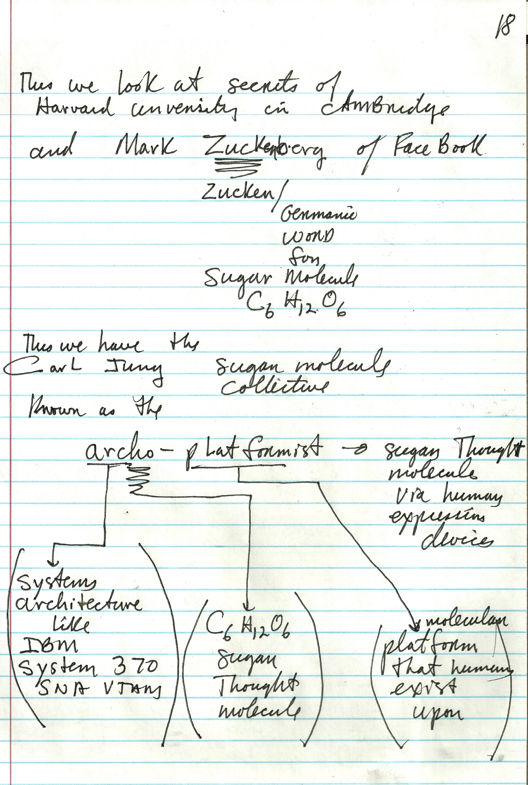 18
Thus we look at secrets of
Harvard university in cAmBridge
and Mark Zuckenberg of FaceBook
Zucken/
Germanic
word
for
Sugar Molecule
C6 H12 O6
Thus we have the
Carl Jung sugar molecule
collective
known as the
archo-platformist → sugar Thought
molecule
via human
expression
devices
systems
architecture
like
IBM
System 370
SNA VTAM
C6 H12 O6
sugar
Thought
molecule
molecular
platform
that humans
exist
upon